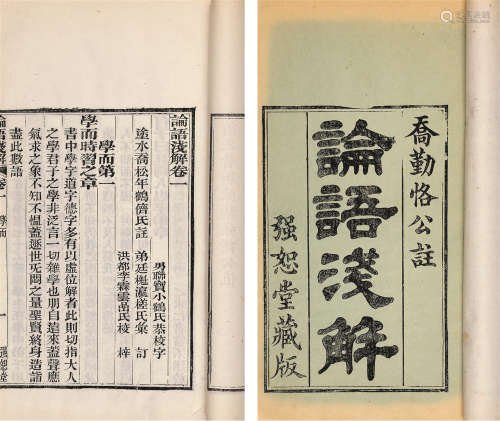 喬勤恪公註
論語淺解
强恕堂藏版
論語淺解卷一
男聯寶小鶴氏恭校字
途水喬松年鶴儕氏註
弟廷櫆瀛槎氏彙訂
洪都李霖雲苗氏校梓
學而第一
學而時習之章
書中學字道字德字多有以虛位解者此則切指大人
之學君子之學非泛言一切雜學也朋自遠來蓋聲應
氣求之象不知不慍蓋遯世无悶之量聖賢終身造詣
盡此數語
論語淺解
卷一
學而
一
強恕堂